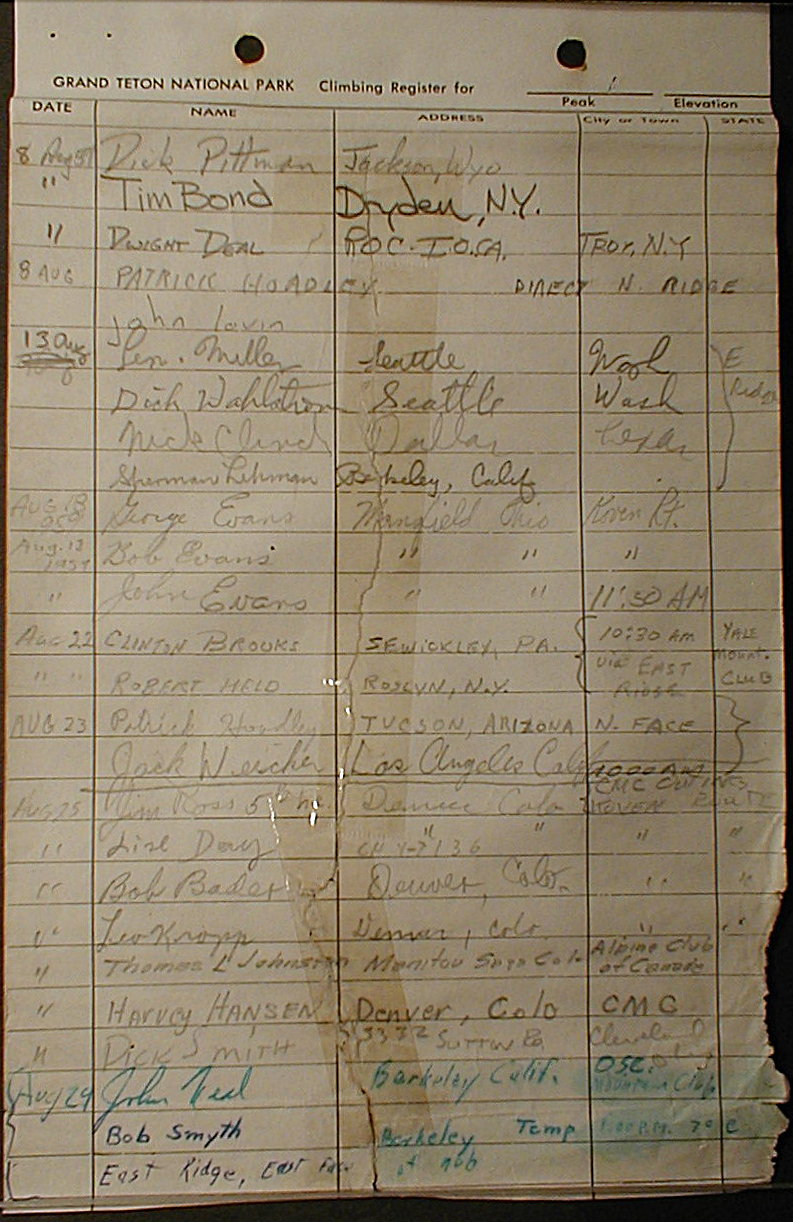 GRAND TETON NATIONAL PARK Climbing Register for
Peak Elevation
DATE NAME ADDRESS City or Town STATE
8 Aug 57 Dick Pittman Jackson, Wyo
" Tim Bond Dryden, N.Y.
" DWIGHT DEAL ROC-I.O.CA. TROY, N.Y
8 AUG PATRICK HOADLEY DIRECT N. RIDGE
john lovin
13 Aug Len. Miller Seattle Wash E
Dick Wahlstrom Seattle Wash Ridge
Nick Clinch Dallas Texas
Sherman Lehman Berkeley, Calif
AUG. George Evans Mansfield Ohio Koven Rt.
Aug. 13 1957 Bob Evans " " "
" John Evans " " 11:50 AM
Aug 22 CLINTON BROOKS SEWICKLEY, PA. 10:30 AM YALE
via EAST MOUNT.
" " ROBERT HELD ROSLYN, N.Y. RIDGE CLUB
AUG 23 Patrick Hoadley TUCSON, ARIZONA N. FACE
Jack Weicher Los Angeles Calif
CMC OUTING
Aug 25 Jim Ross 5th Denver Colo KOVEN ROUTE
" " " " "
" Bob Bader Denver, Colo. " "
" Leo Kropp Denver, Colo " "
" Thomas L Johnston Manitou Spgs Colo Alpine Club
of Canada
" HARVEY HANSEN Denver, Colo CMC
" DICK SMITH 3332 SUTTON Rd Cleveland O
Aug 29 John Neal Berkeley Calif. O.S.C.
Mountain Club
Bob Smyth Berkeley Temp 1:00 P.M. 70° C
East Ridge, East Face